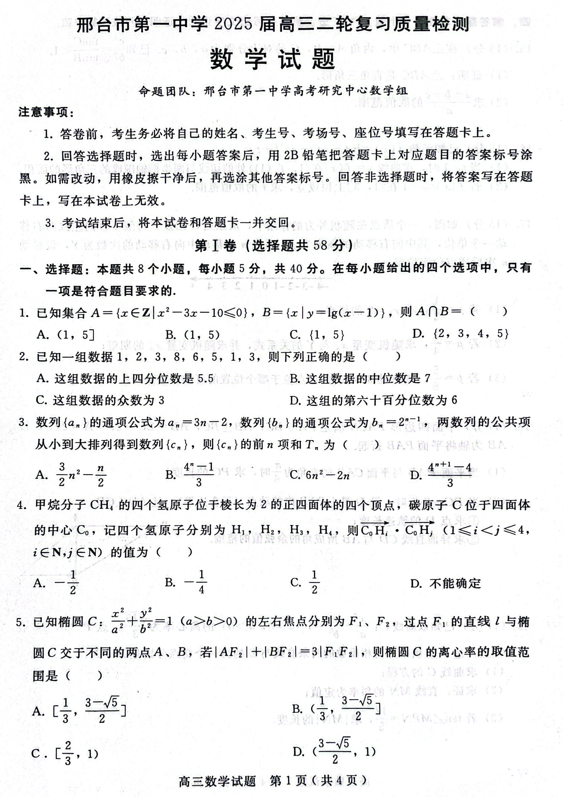 邢台市第一中学 2025 届高三二轮复习质量检测
数学试题
命题团队：邢台市第一中学高考研究中心数学组
注意事项：
1. 答卷前，考生务必将自己的姓名、考生号、考场号、座位号填写在答题卡上。
2. 回答选择题时，选出每小题答案后，用 2B 铅笔把答题卡上对应题目的答案标号涂
黑。如需改动，用橡皮擦干净后，再选涂其他答案标号。回答非选择题时，将答案写在答题
卡上，写在本试卷上无效。
3. 考试结束后，将本试卷和答题卡一并交回。
第 I 卷（选择题共 58 分）
一、选择题：本题共 8 个小题，每小题 5 分，共 40 分。在每小题给出的四个选项中，只有
一项是符合题目要求的.
1. 已知集合 A={x∈Z|x²-3x-10≤0}，B={x|y=lg(x-1)}，则 A∩B=（ ）
A. (1，5] B. (1，5) C. {1，5} D. {2，3，4，5}
2. 已知一组数据 1，2，3，8，6，5，1，3，则下列正确的是（ ）
A. 这组数据的上四分位数是 5.5 B. 这组数据的中位数是 7
C. 这组数据的众数为 3 D. 这组的第六十百分位数为 6
3. 数列{aₙ}的通项公式为 aₙ=3n-2，数列{bₙ}的通项公式为 bₙ=2ⁿ⁻¹，两数列的公共项
从小到大排列得到数列{cₙ}，则{cₙ}的前 n 项和 Tₙ 为（ ）
A. 3/2 n²-n/2 B. (4ⁿ-1)/3 C. 6n²-2n D. (4ⁿ⁺¹-4)/3
4. 甲烷分子 CH₄ 的四个氢原子位于棱长为 2 的正四面体的四个顶点，碳原子 C 位于四面体
的中心 C₀，记四个氢原子分别为 H₁，H₂，H₃，H₄，则C₀Hᵢ·C₀Hⱼ（1≤i<j≤4，
i∈N,j∈N）的值为（ ）
A. -1/2 B. -1/4 C. 1/2 D. 不能确定
5. 已知椭圆 C：x²/a²+y²/b²=1（a>b>0）的左右焦点分别为 F₁、F₂，过点 F₁ 的直线 l 与椭
圆 C 交于不同的两点 A、B，若|AF₂|+|BF₂|=3|F₁F₂|，则椭圆 C 的离心率的取值范
围是（ ）
A. [1/3，(3-√5)/2] B. (1/3，(3-√5)/2]
C. [2/3，1) D. ((3-√5)/2，1)
高三数学试题 第 1 页（共 4 页）